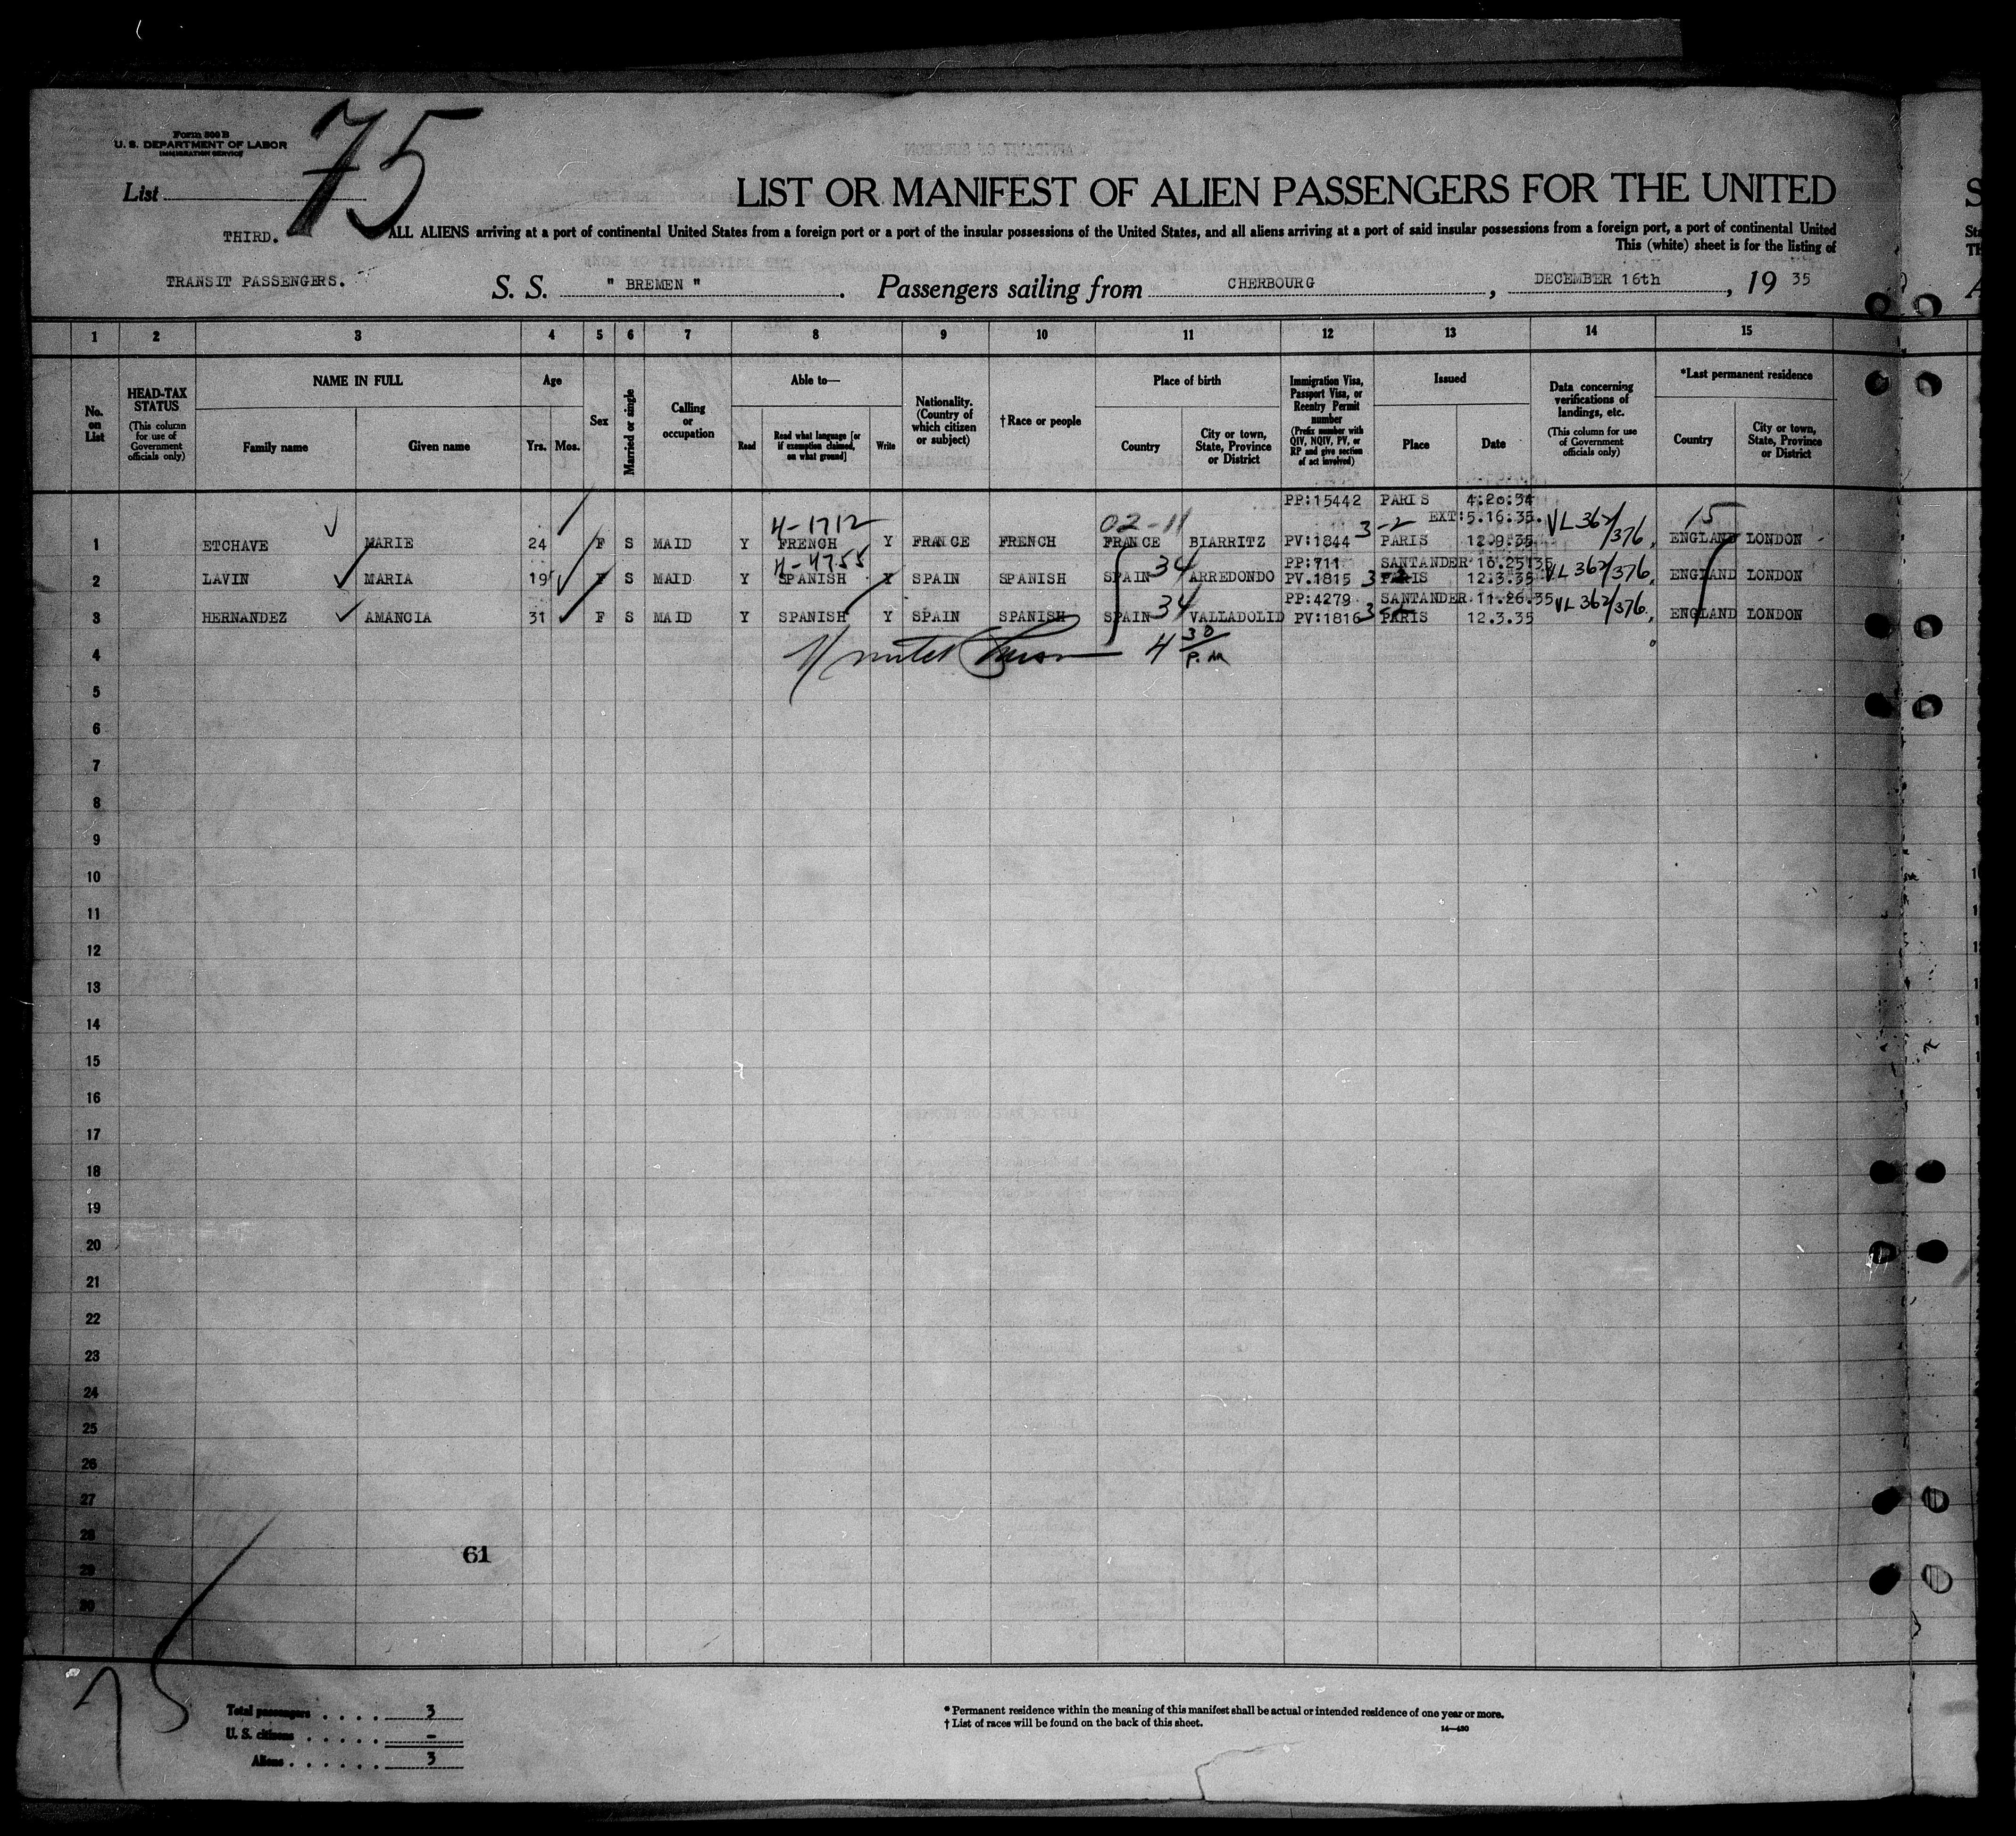 Form 500 B
U. S. DEPARTMENT OF LABOR
IMMIGRATION SERVICE
75
List
LIST OR MANIFEST OF ALIEN PASSENGERS FOR THE UNITED
S
THIRD.
ALL ALIENS arriving at a port of continental United States from a foreign port or a port of the insular possessions of the United States, and all aliens arriving at a port of said insular possessions from a foreign port, a port of continental United
This (white) sheet is for the listing of
TRANSIT PASSENGERS.
S. S. " BREMEN " . Passengers sailing from CHERBOURG , DECEMBER 16th , 19 35
1 2 3 4 5 6 7 8 9 10 11 12 13 14 15
No. on List
HEAD-TAX STATUS (This column for use of Government officials only)
NAME IN FULL
Family name
Given name
Age
Yrs. Mos.
Sex
Married or single
Calling or occupation
Able to—
Read
Read what language [or if exemption claimed, on what ground]
Write
Nationality. (Country of which citizen or subject)
†Race or people
Place of birth
Country
City or town, State, Province or District
Immigration Visa, Passport Visa, or Reentry Permit number (Prefix number with QIV, NQIV, PV, or RP and give section of act involved)
Issued
Place
Date
Data concerning verifications of landings, etc. (This column for use of Government officials only)
*Last permanent residence
Country
City or town, State, Province or District
PP:15442 PARIS 4:20:34
4-1712 02-11 3-2 EXT:5.16.35. VL 362/376 15
1 ETCHAVE MARIE 24 F S MAID Y FRENCH Y FRANCE FRENCH FRANCE BIARRITZ PV:1844 PARIS 12.9.35 ENGLAND LONDON
4-4755 34 PP:711 SANTANDER 10.25.35 VL 362/376
2 LAVIN MARIA 19 F S MAID Y SPANISH Y SPAIN SPANISH SPAIN ARREDONDO PV.1815 3-2 PARIS 12.3.35 ENGLAND LONDON
34 PP:4279 SANTANDER 11.26.35 VL 362/376
3 HERNANDEZ AMANCIA 31 F S MAID Y SPANISH Y SPAIN SPANISH SPAIN VALLADOLID PV:1816 3-2 PARIS 12.3.35 ENGLAND LONDON
4 4 30 P.M
5
6
7
8
9
10
11
12
13
14
15
16
17
18
19
20
21
22
23
24
25
26
27
28
61
29
30
75
Total passengers . . . . 3
U. S. citizens . . . . . –
Aliens . . . . . . 3
* Permanent residence within the meaning of this manifest shall be actual or intended residence of one year or more.
† List of races will be found on the back of this sheet.
14—430